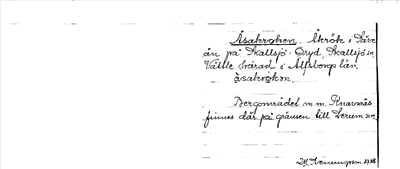 Åsakroken. Åkrök i Säve
ån på Skallsjö-Öryd, Skallsjö sn
Vättle härad i Älfsborgs län.
åsakrȯkȯn.
Bergområdet m.m.
finnes där på gränsen till Lerum sn